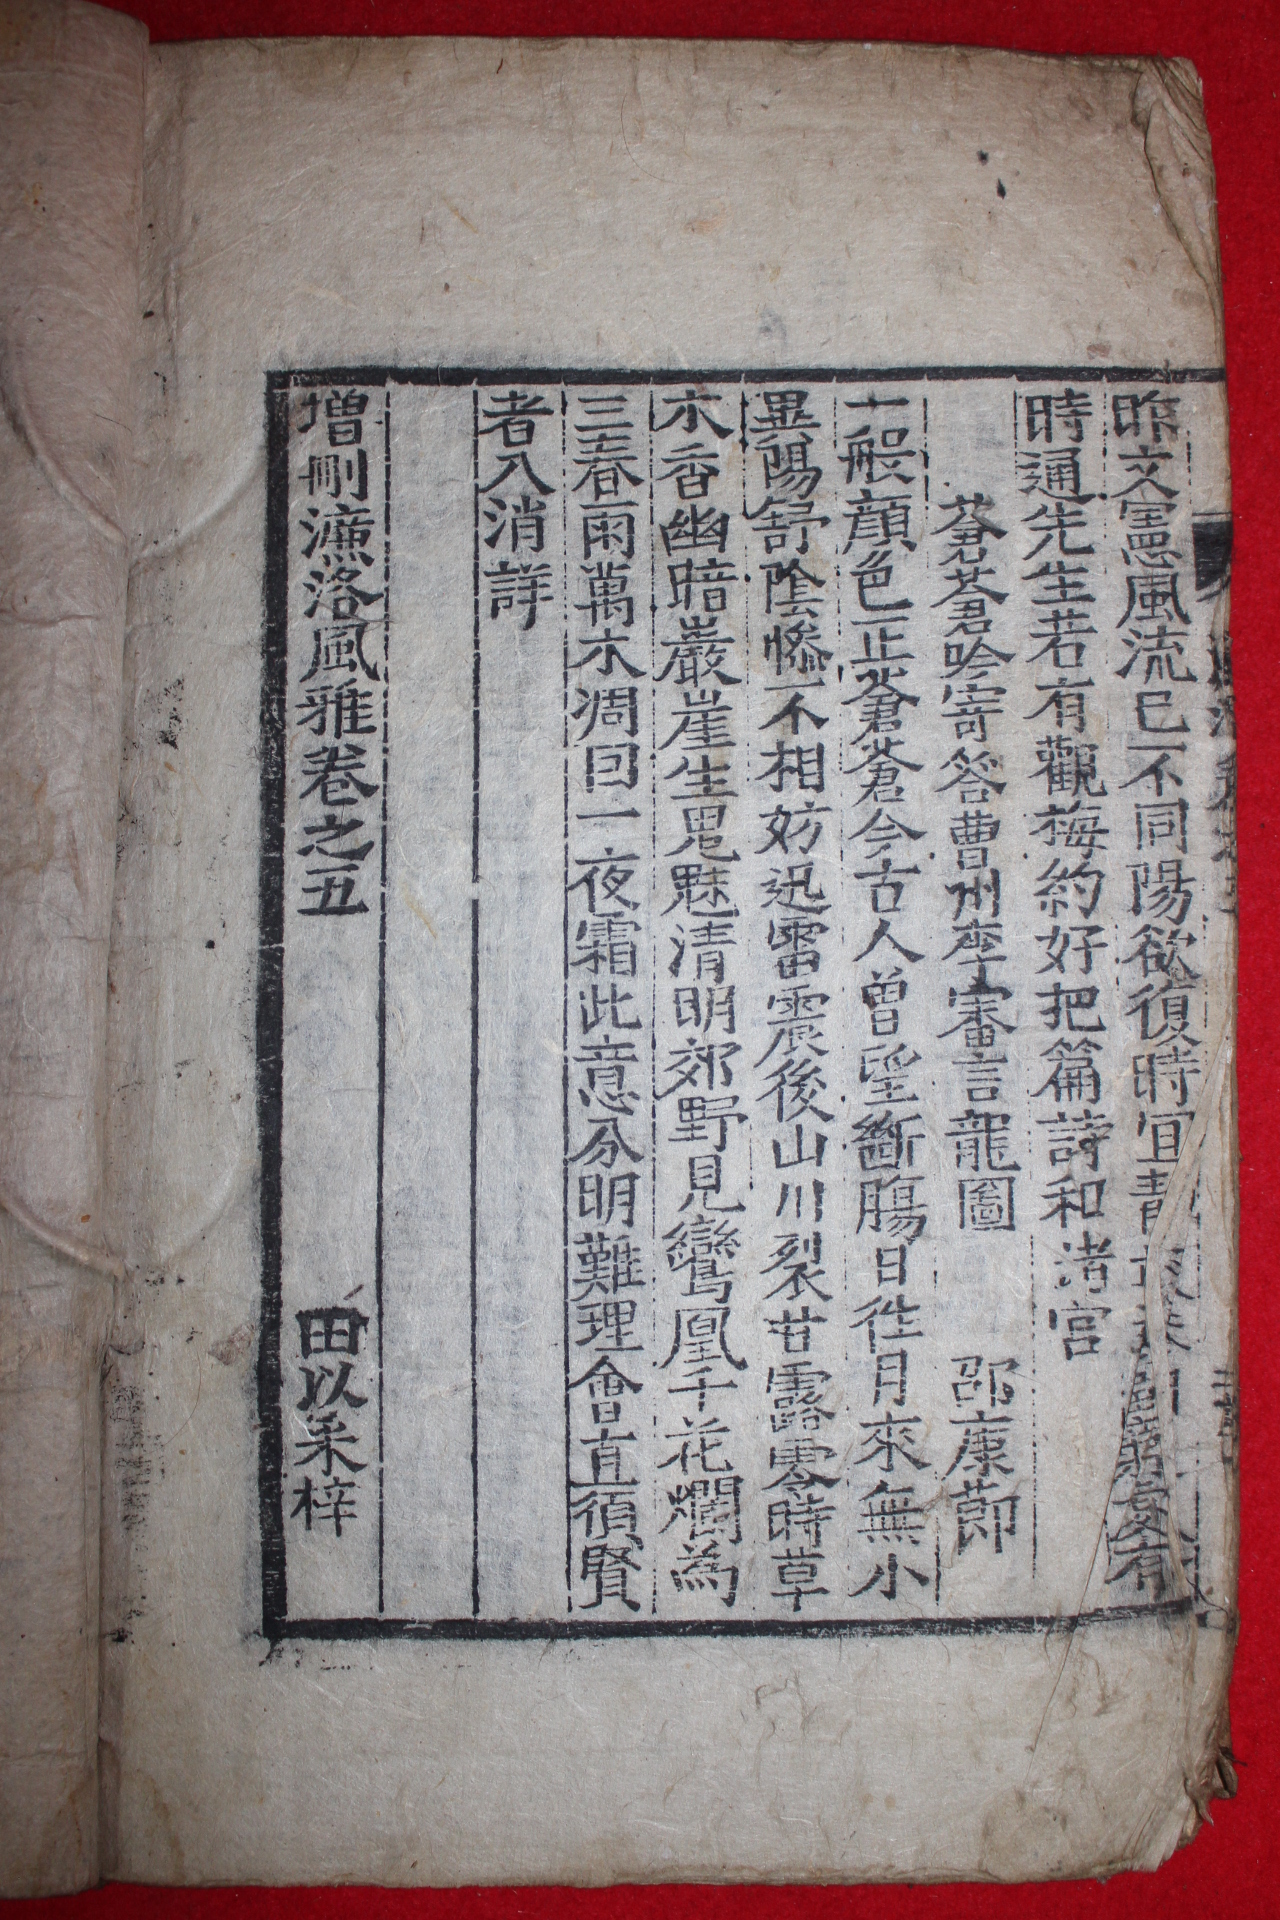 昨文憲風流已不同陽欲復時宜靜窮變有
時通先生若有觀梅約好把篇詩和渚宮
蒼蒼吟寄答曹州李審言龍圖 邵康節
一般顔色正蒼蒼今古人曾望斷腸日徃月來無小
異陽舒陰慘不相妨迅雷震後山川裂甘露零時草
木香幽暗巖崖生鬼魅清明郊野見鸞凰千花爛為
三春雨萬木凋囙一夜霜此意分明難理會直須賢
者入消詳
增刪濂洛風雅卷之五 田以采梓